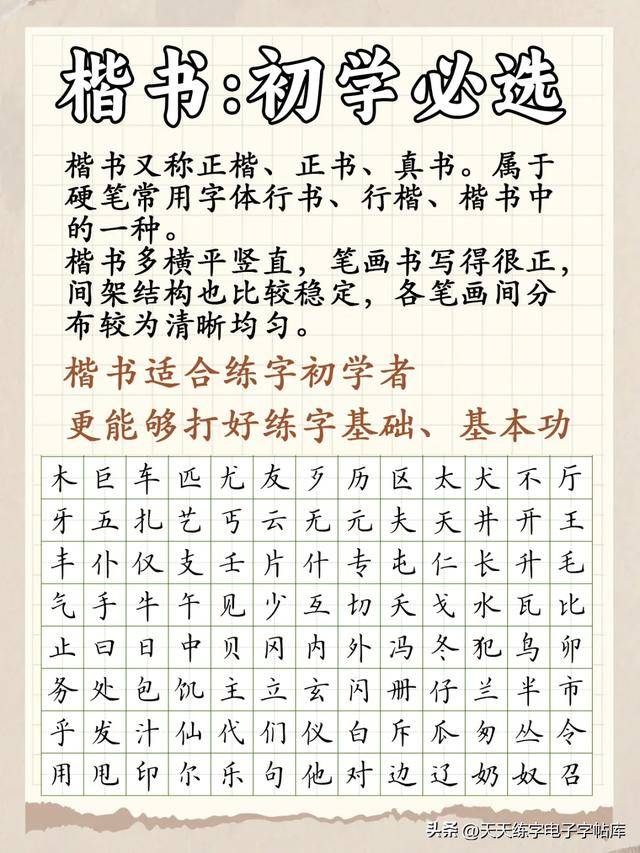 楷书:初学必选
楷书又称正楷、正书、真书。属于
硬笔常用字体行书、行楷、楷书中
的一种。
楷书多横平竖直，笔画书写得很正，
间架结构也比较稳定，各笔画间分
布较为清晰均匀。
楷书适合练字初学者
更能够打好练字基础、基本功
木巨车匹尤友歹历区太犬不厅
牙五扎艺丐云无元夫天井开王
丰仆仅支壬片什专屯仁长升毛
气手牛午见少互切夭戈水瓦比
止曰日中贝冈内外冯冬犯鸟卯
务处包饥主立玄闪册仔兰半市
乎发汁仙代们仪白斥瓜匆丛令
用甩印尔乐句他对边辽奶奴召
头条 @天天练字电子字帖库